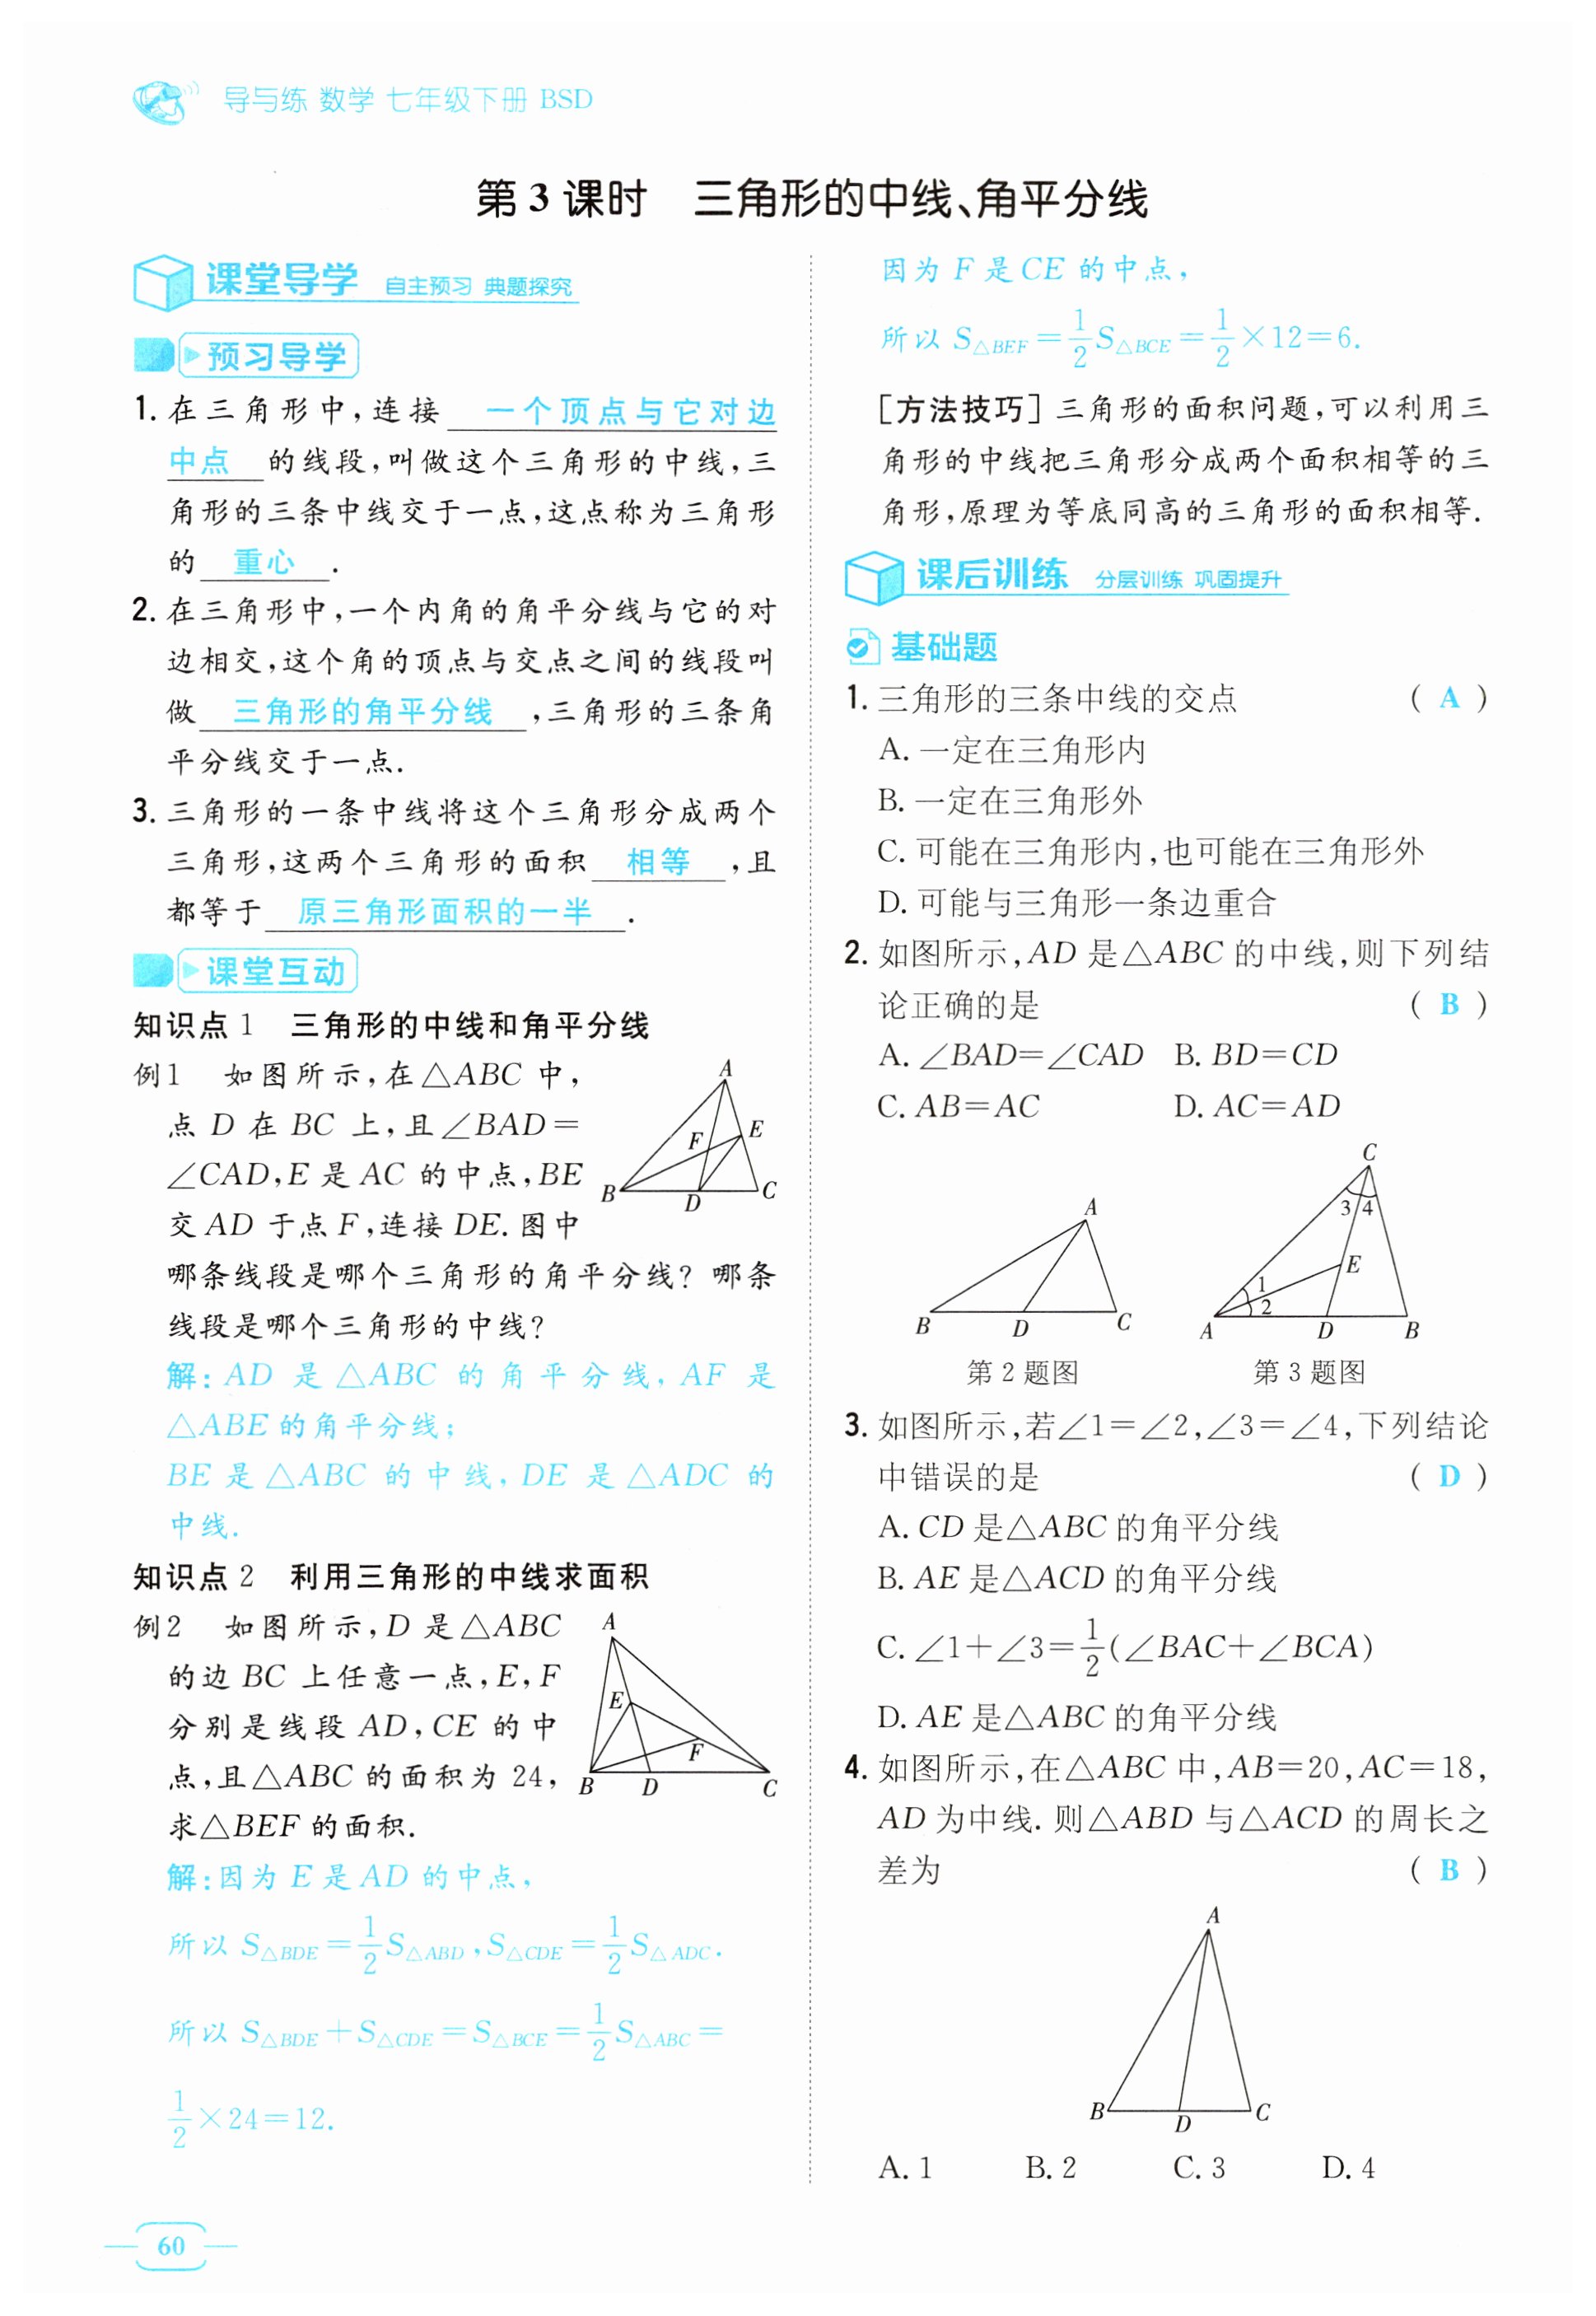 导与练 数学 七年级下册 BSD
第3课时 三角形的中线、角平分线
课堂导学 自主预习 典题探究
预习导学
1. 在三角形中,连接 一个顶点与它对边
中点 的线段,叫做这个三角形的中线,三
角形的三条中线交于一点,这点称为三角形
的 重心 .
2. 在三角形中,一个内角的角平分线与它的对
边相交,这个角的顶点与交点之间的线段叫
做 三角形的角平分线 ,三角形的三条角
平分线交于一点.
3. 三角形的一条中线将这个三角形分成两个
三角形,这两个三角形的面积 相等 ,且
都等于 原三角形面积的一半 .
课堂互动
知识点1 三角形的中线和角平分线
例1 如图所示,在△ABC中,
点D在BC上,且∠BAD=
∠CAD,E是AC的中点,BE
交AD于点F,连接DE.图中
哪条线段是哪个三角形的角平分线? 哪条
线段是哪个三角形的中线?
A
E
F
B
D
C
解:AD是△ABC的角平分线,AF是
△ABE的角平分线;
BE是△ABC的中线,DE是△ADC的
中线.
知识点2 利用三角形的中线求面积
例2 如图所示,D是△ABC
的边BC上任意一点,E,F
分别是线段AD,CE的中
点,且△ABC的面积为24,
求△BEF的面积.
A
E
F
B
D
C
解:因为E是AD的中点,
所以S△BDE=1/2S△ABD,S△CDE=1/2S△ADC.
所以S△BDE+S△CDE=S△BCE=1/2S△ABC=
1/2×24=12.
因为F是CE的中点,
所以S△BEF=1/2S△BCE=1/2×12=6.
[方法技巧] 三角形的面积问题,可以利用三
角形的中线把三角形分成两个面积相等的三
角形,原理为等底同高的三角形的面积相等.
课后训练 分层训练 巩固提升
基础题
1. 三角形的三条中线的交点 ( A )
A. 一定在三角形内
B. 一定在三角形外
C. 可能在三角形内,也可能在三角形外
D. 可能与三角形一条边重合
2. 如图所示,AD是△ABC的中线,则下列结
论正确的是 ( B )
A. ∠BAD=∠CAD B. BD=CD
C. AB=AC D. AC=AD
A
B
D
C
第2题图
C
3 4
E
1
2
A
D
B
第3题图
3. 如图所示,若∠1=∠2,∠3=∠4,下列结论
中错误的是 ( D )
A. CD是△ABC的角平分线
B. AE是△ACD的角平分线
C. ∠1+∠3=1/2(∠BAC+∠BCA)
D. AE是△ABC的角平分线
4. 如图所示,在△ABC中,AB=20,AC=18,
AD为中线.则△ABD与△ACD的周长之
差为 ( B )
A
B
D
C
A. 1 B. 2 C. 3 D. 4
60